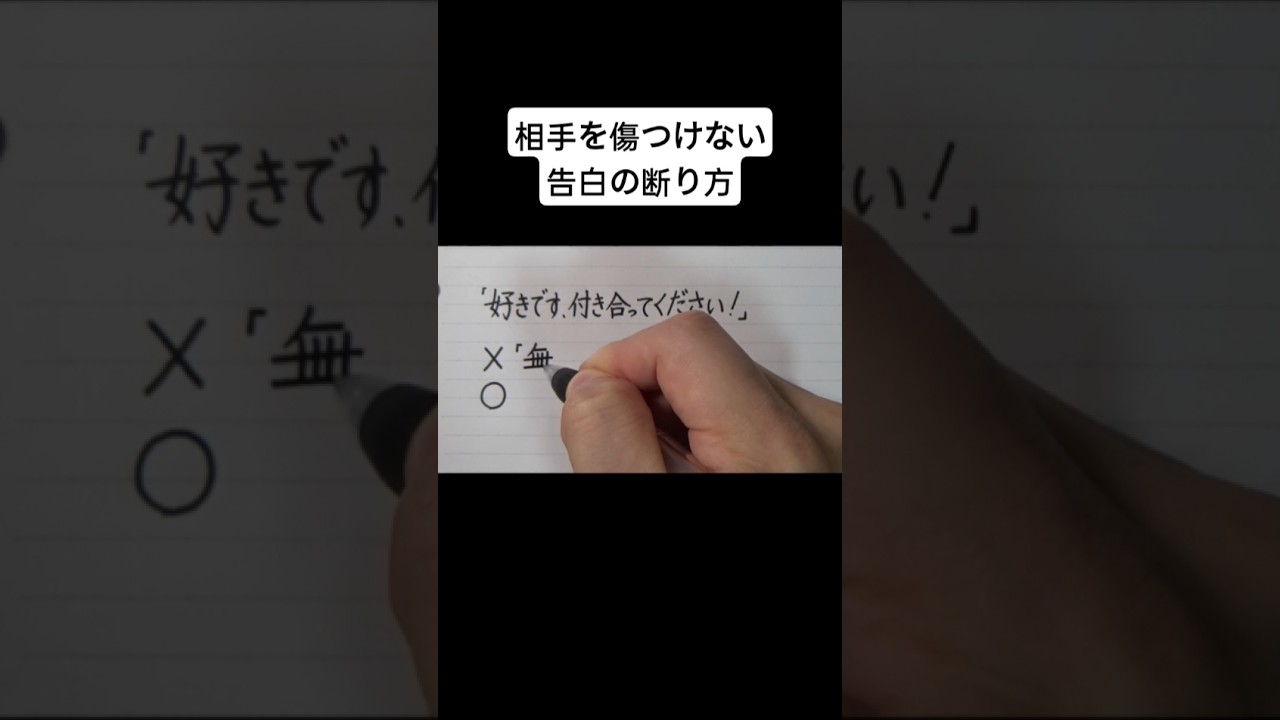 相手を傷つけない
告白の断り方
「好きです、付き合ってください!」
×「無
○